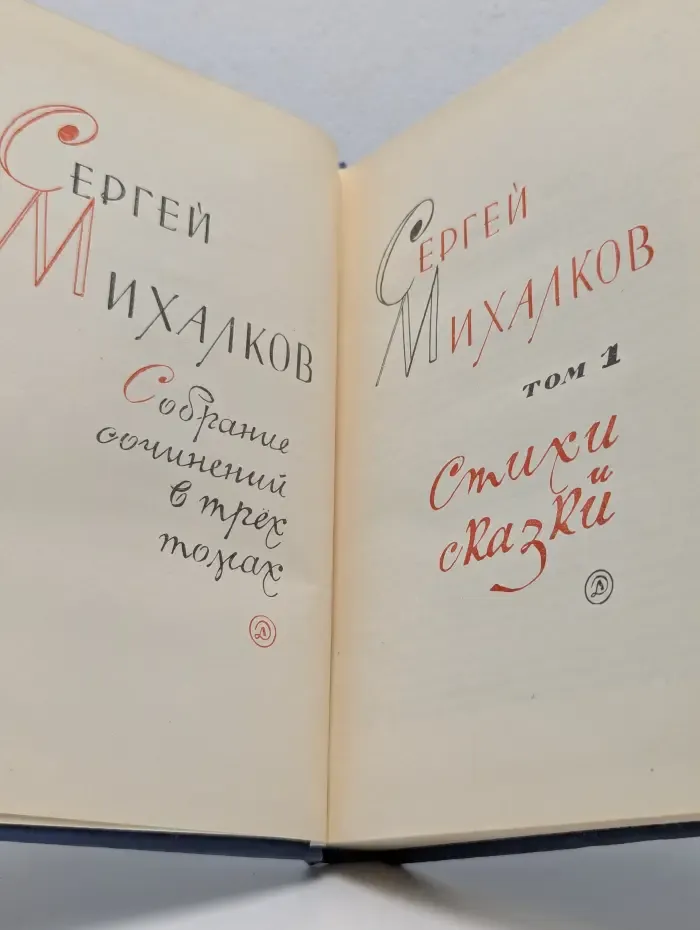 Сергей
Михалков
Собрание
сочинений
в трёх
томах
Д
Сергей
Михалков
том 1
Стихи
и
сказки
Д